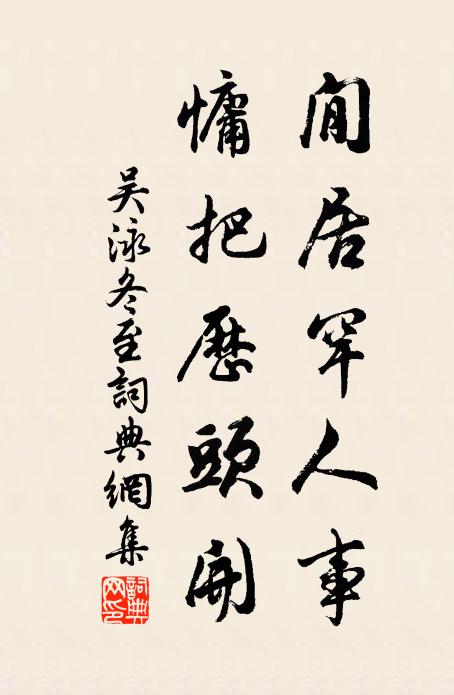 閒居罕人事
慵把歷頭開
吴泳冬至詞典網集
詞典网印